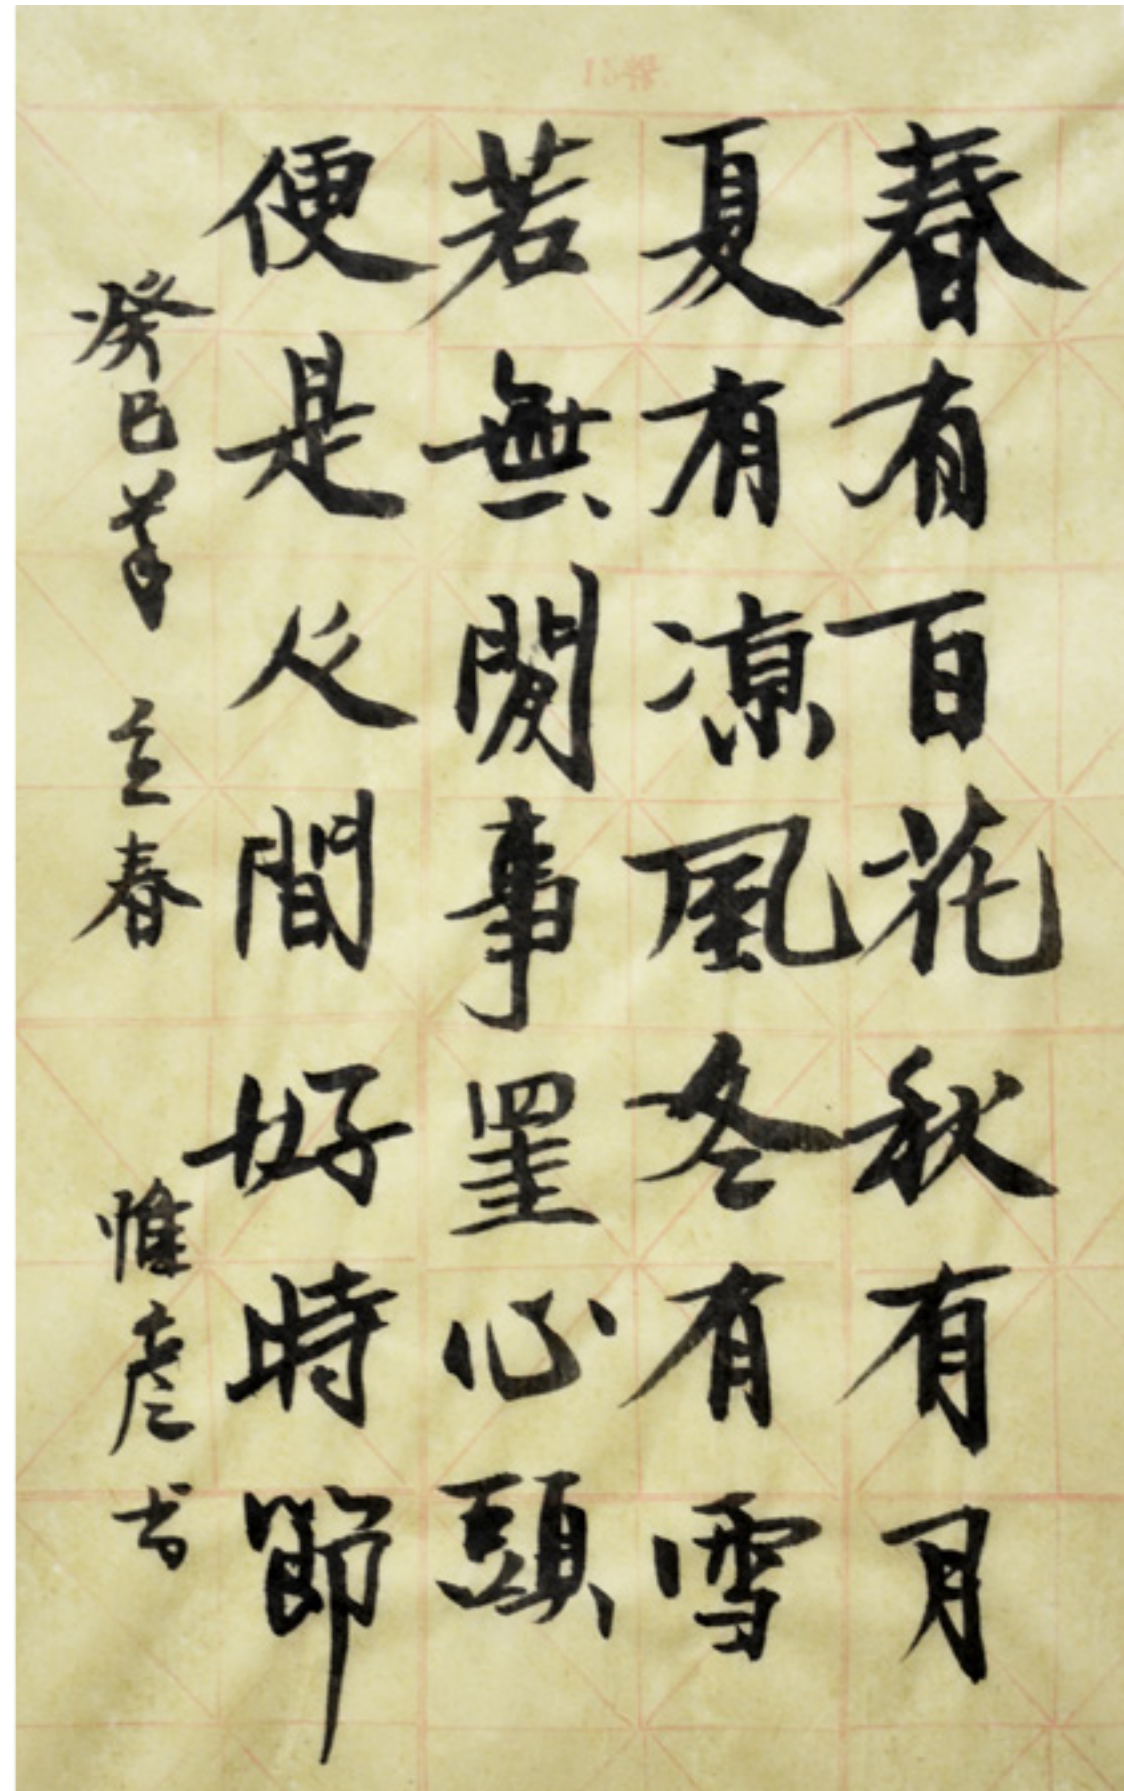 春有百花秋有月
夏有凉風冬有雪
若無閒事罣心頭
便是人間好時節
癸巳年 立春 惟彥書